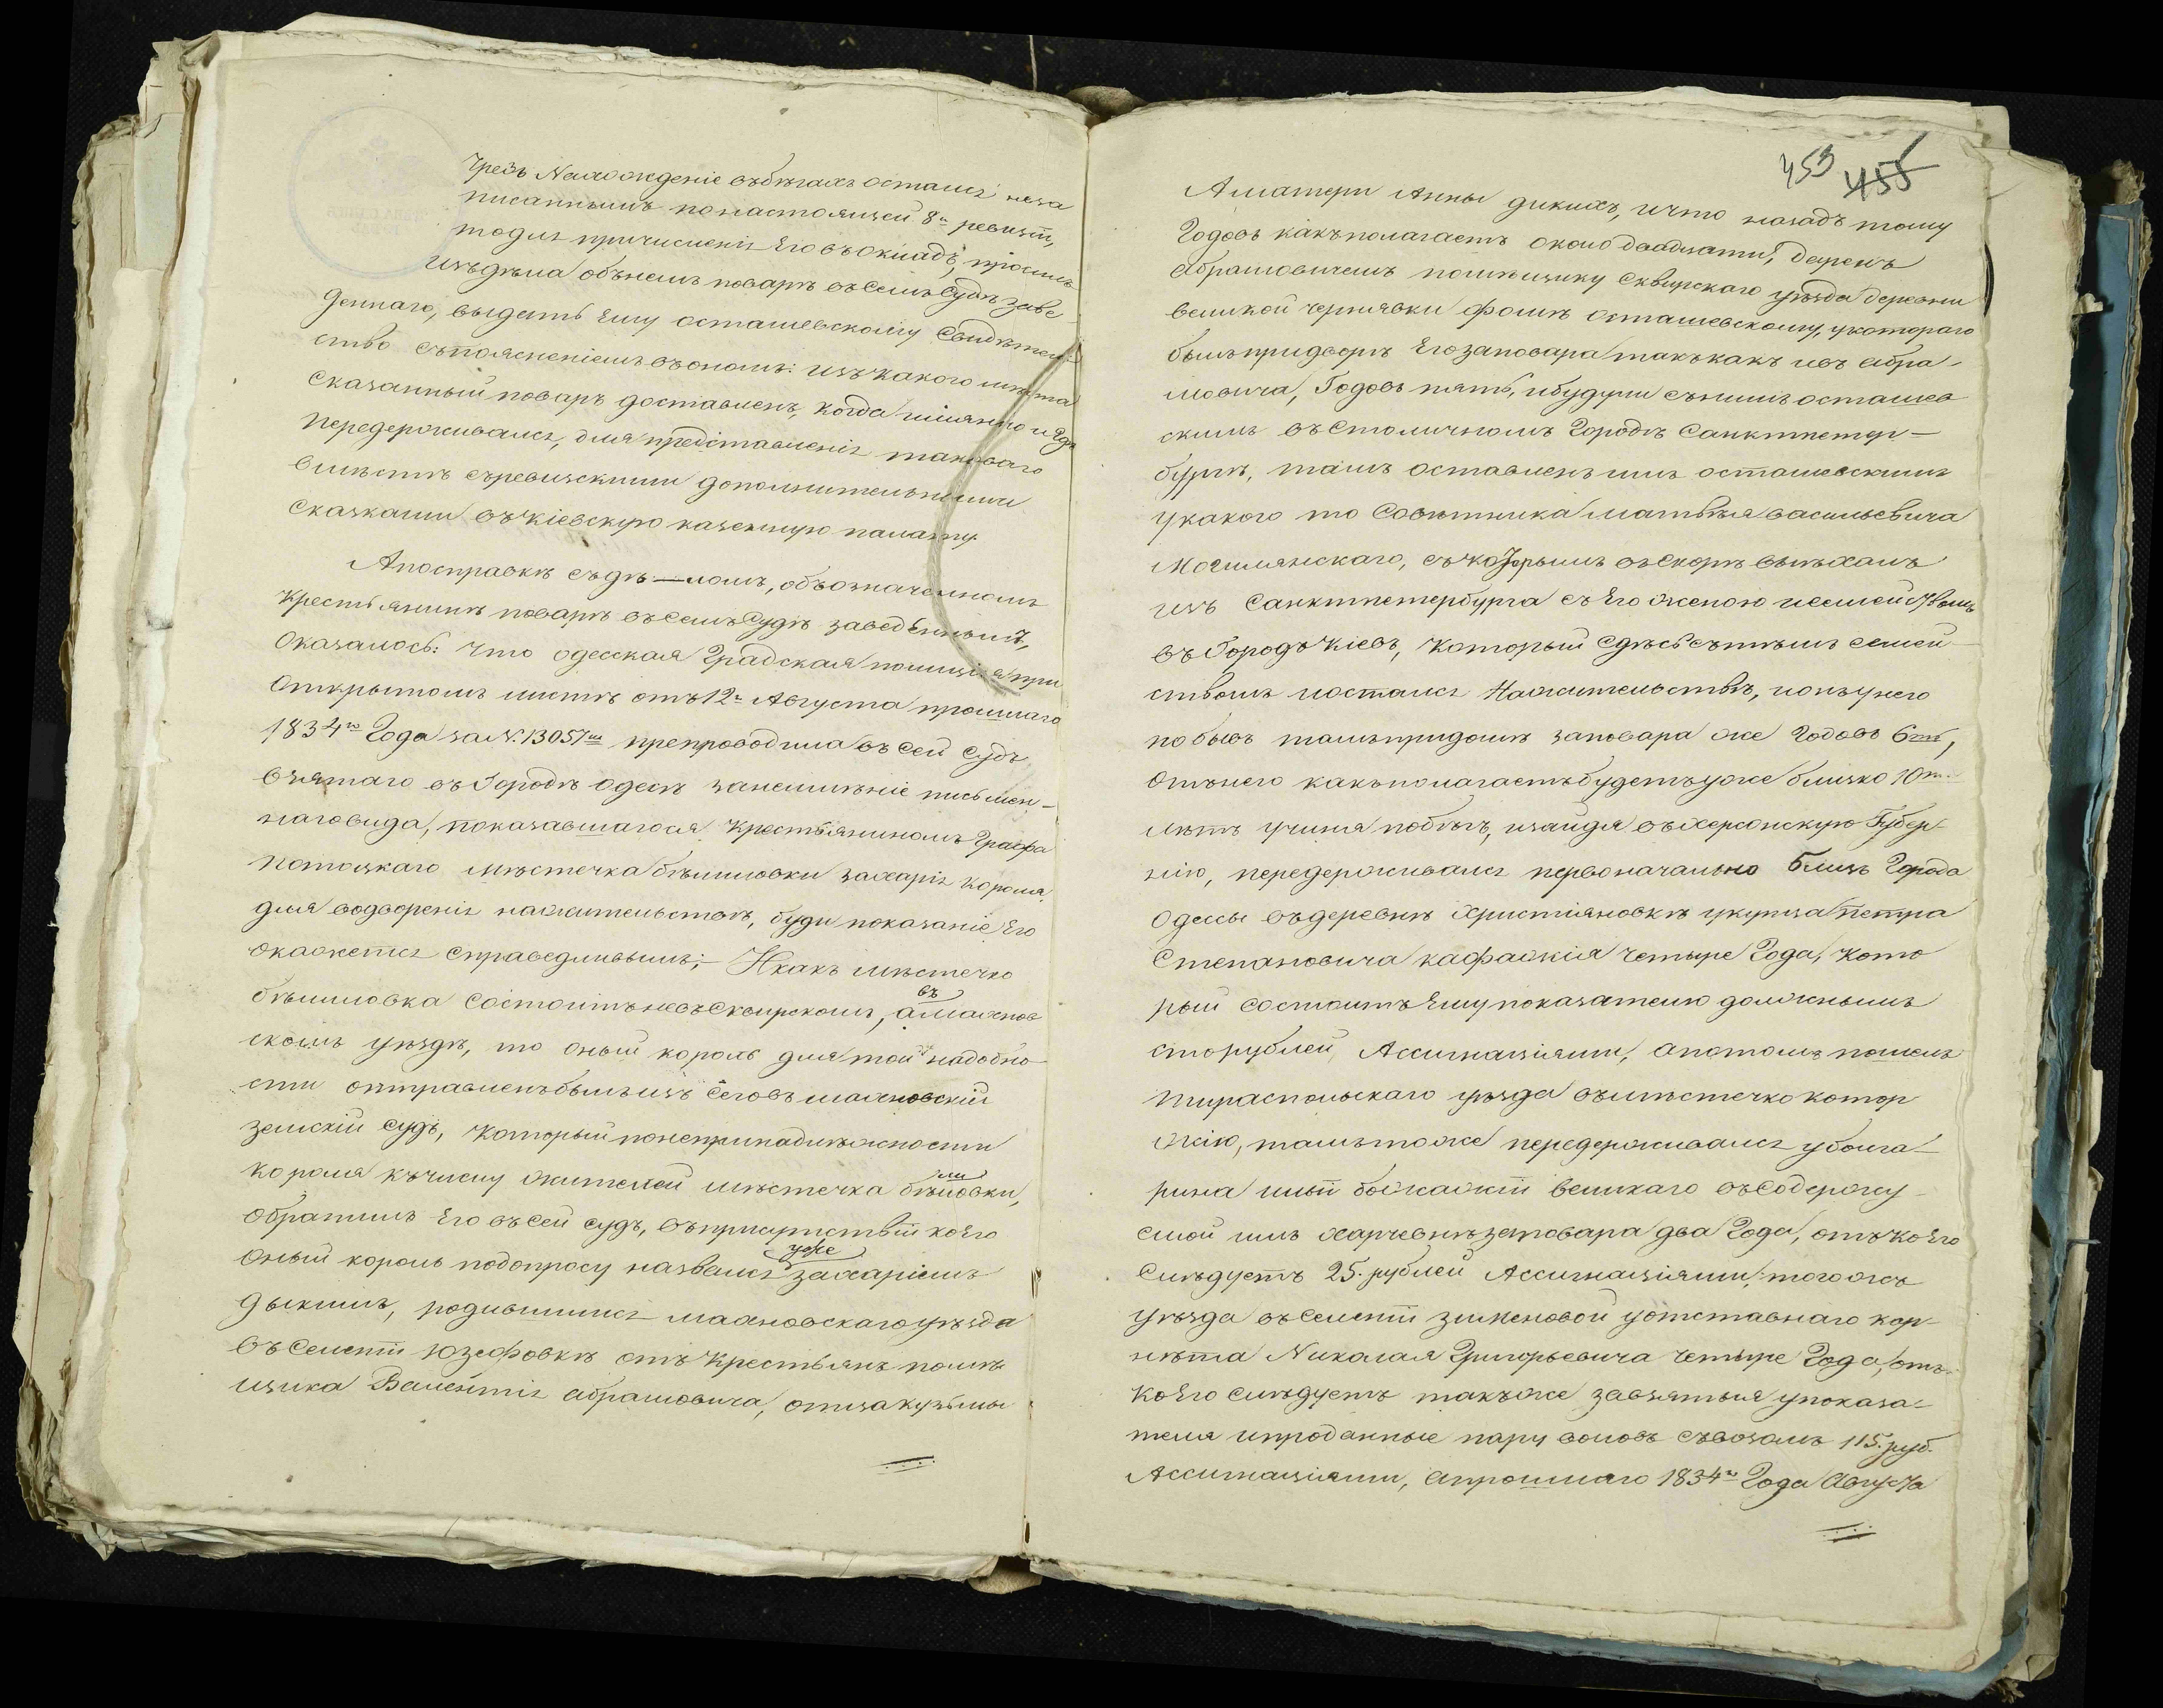 чрезъ Нахожденіе въбѣгахъ осталсь неза
писаннымъ понастоящей 8й ревизіи,
тодля причисленія Его въокладъ, просилъ
изъдѣла объ немъ поварѣ въ Семъ Судѣ заве
деннаго, выдать Ему осташевскому Свидѣтель-
ство съпоясненіемъ въономъ: изъ какого мѣста
Сказанный поваръ доставленъ, когда имянно и Гдѣ
передерживался, для представленія таковаго
вмѣстѣ съревизскими дополнительными
Сказками въ кіевскую казенную палату.
Апосправкѣ съдѣ—ломъ, объозначенномъ
Крестьянинѣ поварѣ въ Семъ Судѣ заведеннымъ,
Оказалось: что одесская Градская полиція при
Открытомъ листѣ отъ 12го Августа прошлаго
1834го Года за №. 13051мъ препроводила въ Сей Судъ
Взятаго въ Городѣ одесѣ занеимѣніе письмен-
наговида, показавшагося Крестьяниномъ Графа
Потоцкаго мѣстечка бѣлиловки захарія Короля
для водворенія нажительствѣ, буди показаніе Его
окажется Справедливымъ; – Икакъ мѣстечко
въ
бѣлиловка Состоитъ невъ Сквирскомъ, а Махнов
скомъ уѣздѣ, то оный король для той надобно
сти отправленъ былъ изъ Сего въ махновскій
земскій Судъ, который понепринадлежности
короля къ числу Жителей мѣстечка бѣловки,
ли
Обратилъ Его въ Сей Судъ, въприсутствіи коего
уже
оный король подопросу назвался захаріемъ
дыкимъ, родившимся махновскаго уѣзда
въ Селеніи Юзефовкѣ отъ Крестьянъ помѣ
щика Валентія абрамовича, отца кузьмы
453 455
Аматери Анны дикихъ, ичто назадъ тому
Годовъ какъполагаетъ около двадцати, даренъ
абрамовичемъ помѣщику Сквирскаго уѣзда деревни
великой чернявки фомѣ осташевскому, укотораго
былъ придворѣ Его заповара такъкакъ иов абра-
мовича, Годовъ пять, ибудучи съ нимъ осташев
скимъ въ Столичномъ Городѣ Санктпетер-
бургѣ, тамъ оставленъ имъ осташевскимъ
укакого то Совѣтника матвѣя васильевича
могилянскаго, съ которымъ въ Скорѣ выѣхалъ
изъ Санктпетербурга съ Его женою
въ Городъ Кіевъ, который Сдѣсь сътѣмъ Семей-
ствомъ иостался Нажительствѣ, ионъ унего
по бывъ тамъ придомѣ заповара же Годовъ 6ть,
отънего какъполагаетъ будетъ уже близко 10ти
лѣтъ учиня побѣгъ, изайдя въ херсонскую Губер-
нію, передерживался первоначально близъ Города
Одессы въдеревнѣ Христіяновкѣ укупца петра
Степановича кафажкія четыре Года, кото
рый Состоитъ Ему показателю должнымъ
сторублей Ассигнаціями, апотомъ пошелъ
тираспольскаго уѣзда въмѣстечко котор
жію, тамътоже передерживался уболга-
рина великаго въ Содержу-
емой имъ харчевнѣ заповара два Года, отъ коего
Слѣдуетъ 25. рублей Ассигнаціями, тогожъ
уѣзда въ Селеніи зименовой уотставнаго кор-
нѣта Николая Григорьевича четыре Года, отъ-
коего Слѣдуетъ такъже завзятыя упоказа-
теля ипроданные пару воловъ съвозомъ 115. руб.
Ассигнаціями, апрошлаго 1834го Года Августа